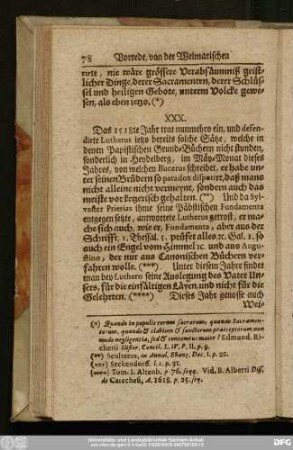 78 Vorrede, von der Weimarischen
rirte, nie wäre grössere Verabsäumniß geist-
licher Dinge, derer Sacramenten, derer Schlüs-
sel und heiligen Gebote, unterm Volcke gewe-
sen, als eben ietzo. (*)
XXX.
Das 1518te Jahr trat nunmehro ein, und defen-
dirte Lutherus ietzo bereits solche Sätze, welche in
denen Papistischen Grunde-Büchern nicht stunden,
sonderlich in Heydelberg, im May-Monat dieses
Jahres, von welchem Bucerus schreibet, er habe un-
ter seinen Brüdern so paradox disputirt, daß mans
nicht alleine nicht vermeynt, sondern auch das
meiste vor ketzerisch gehalten. (**) Und da Syl-
vester Prierias ihme seine Päbstischen Fundamenta
entgegen setzte, antwortete Lutherus getrost, er ma-
che sich auch, wie er, Fundamenta, aber aus der
Schrifft, 1. Thessal. 5. prüfet alles ꝛc. Gal. 1. so
auch ein Engel vom Himmel ꝛc. und aus Augu-
stino, der nur aus Canonischen Büchern ver-
fahren wolle. (***) Unter diesem Jahre findet
man bey Luthero seine Auslegung des Vater Un-
sers, für die einfältigen Läyen, und nicht für die
Gelehrten. (****) Dieses Jahr genosse auch
Wei-
(*) Quando in populis rerum sacrarum, quando Sacramen-
torum, quando & clavium & sanctorum præceptorum non
modo negligentia, sed & contemtus maior? Edmund. Ri-
cherii Histor. Concil. L. IV. P. II. p. 9.
(**) Scultetus, in Annal. Evang. Dec. I. p. 22.
(***) Seckendorff. l. c. p. 31.
(****) Tom. I. Altenb. p. 76. seqq. Vid. B. Alberti Diss.
de Catechesi, A. 1618. p. 25. sq.